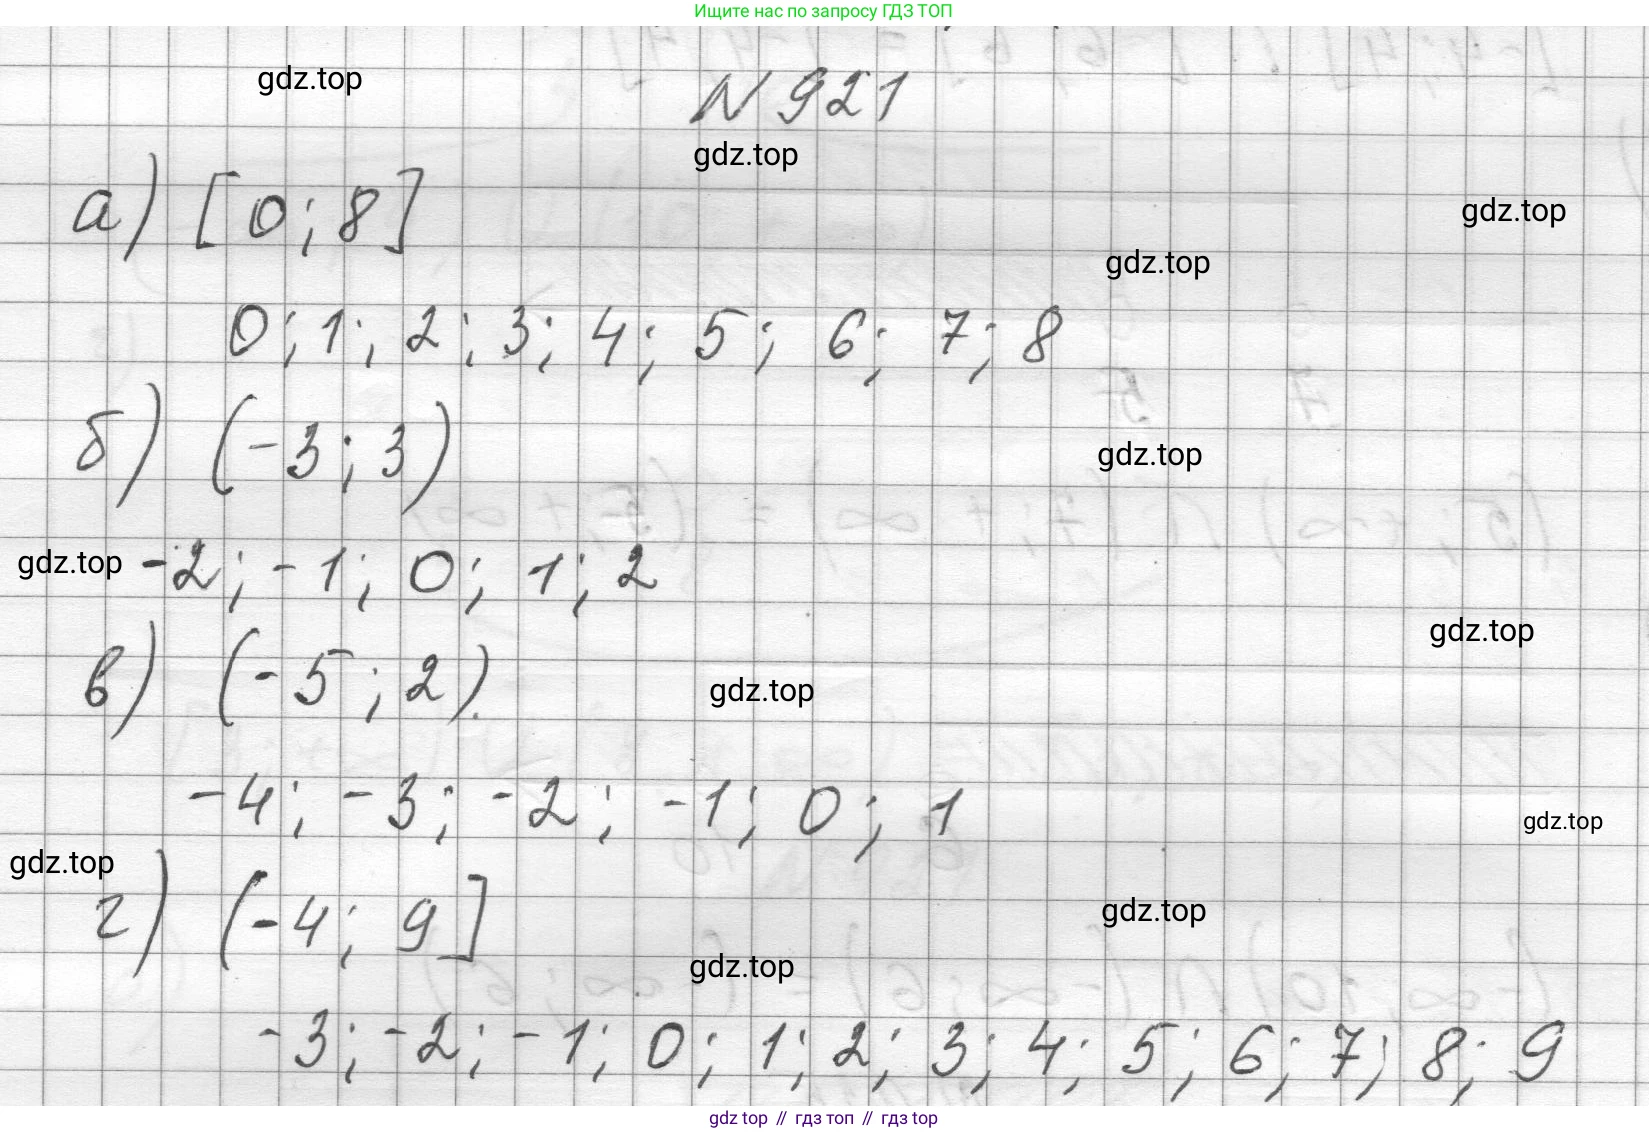 Ищите нас по запросу ГДЗ ТОП
gdz.top
N 921
gdz.top
а) [0; 8]
gdz.top
gdz.top
0; 1; 2; 3; 4; 5; 6; 7; 8
б) (-3; 3)
gdz.top
gdz.top
-2; -1; 0; 1; 2
gdz.top
в) (-5; 2).
gdz.top
-4; -3; -2; -1; 0; 1
gdz.top
gdz.top
г) (-4; 9]
gdz.top
gdz.top
-3; -2; -1; 0; 1; 2; 3; 4; 5; 6; 7; 8; 9
gdz top // гдз топ // гдз top